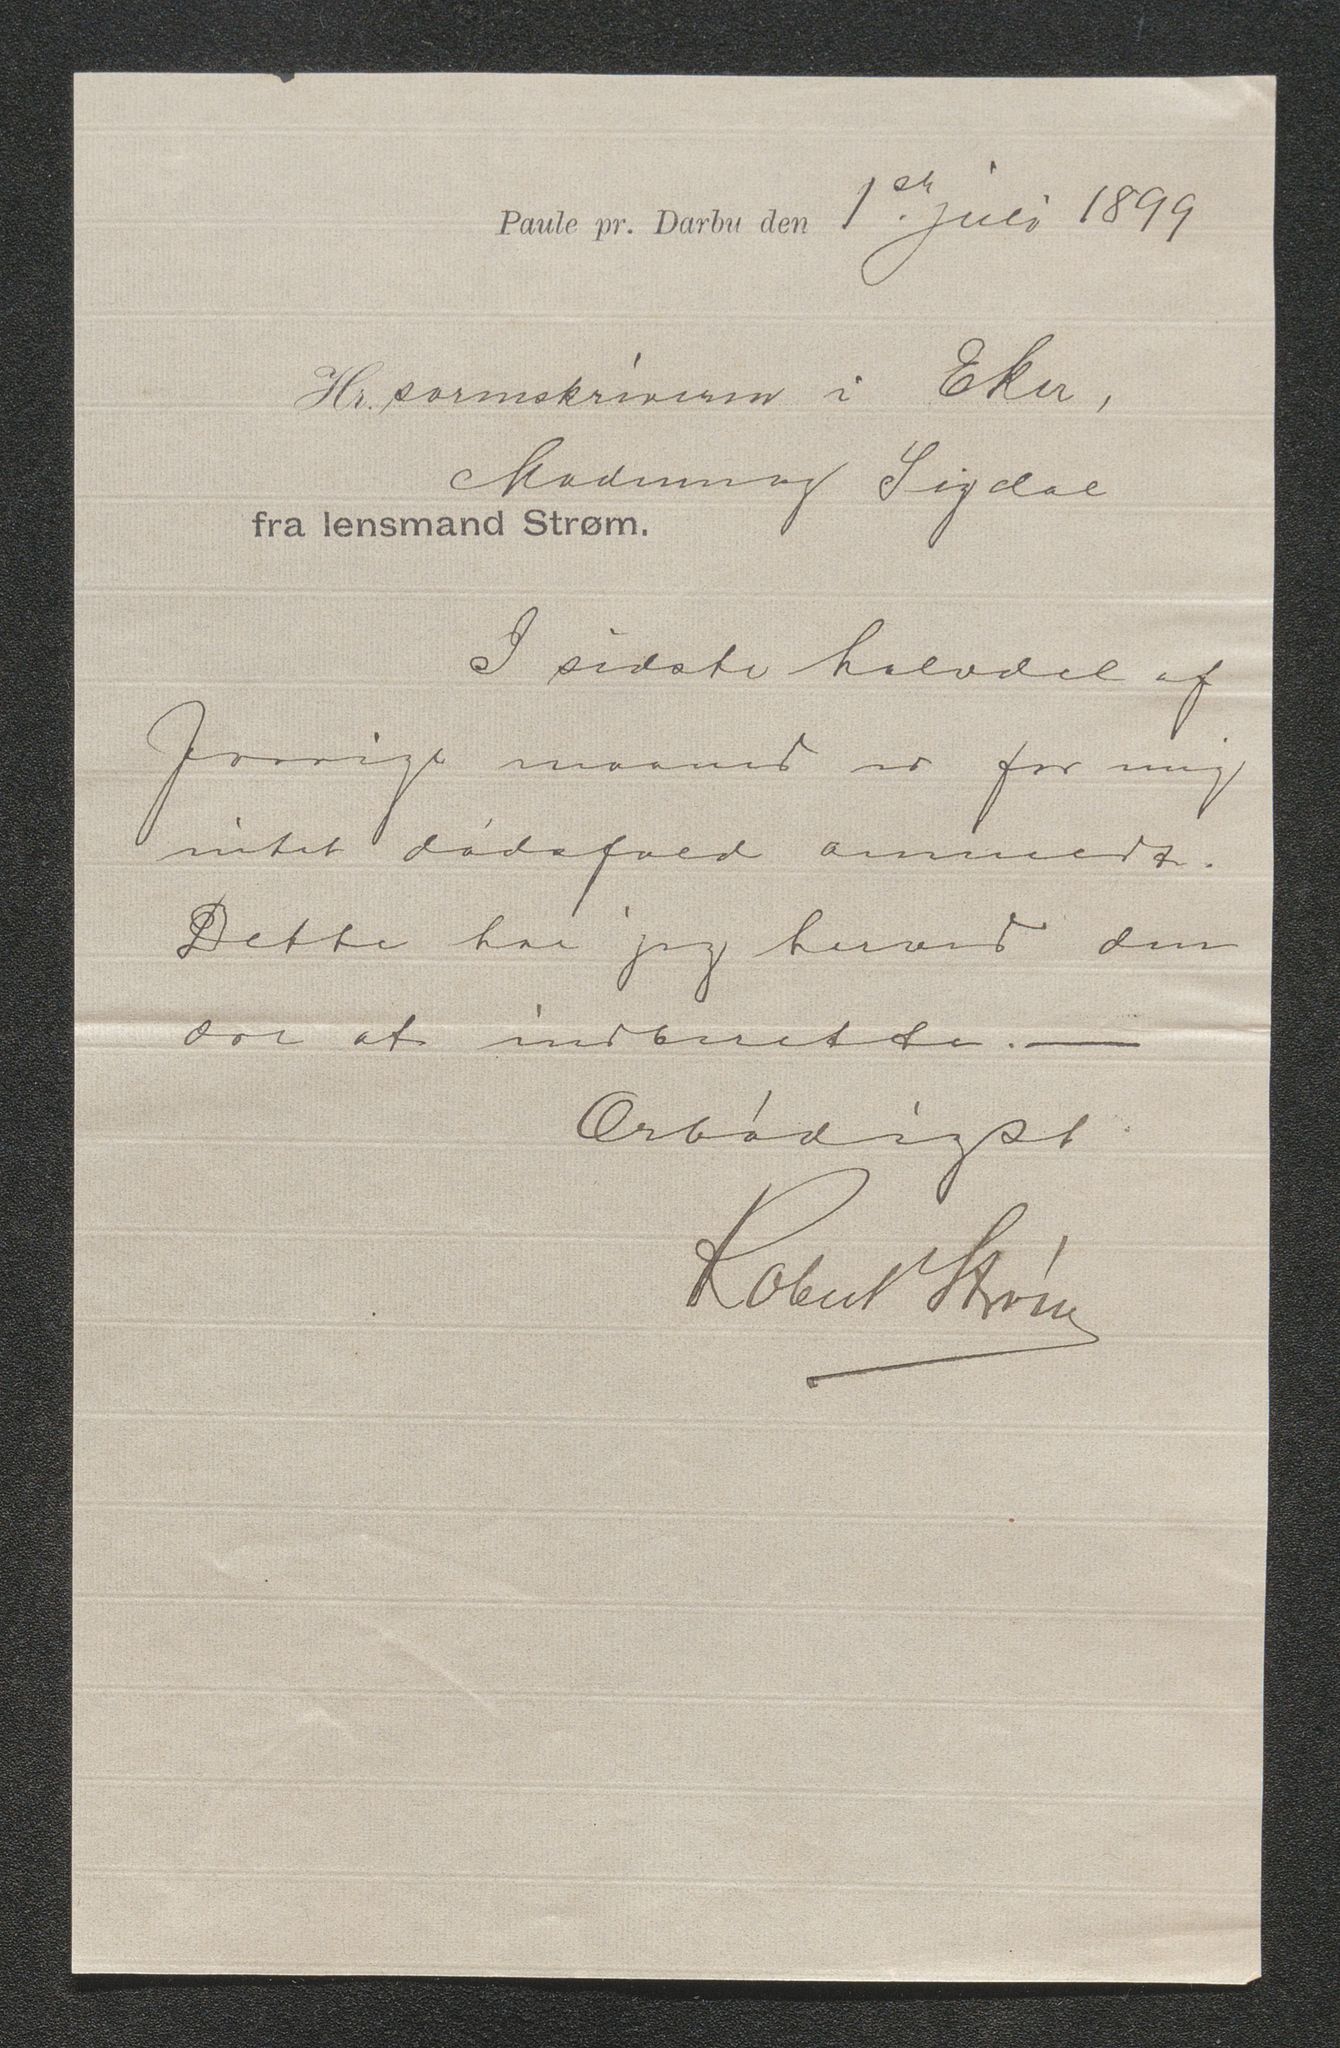 Paule pr. Darbu den 1ste juli 1899
Hr. sorenskriveren i Eker,
Modum og Sigdal
fra lensmand Strøm.
I sidste halvdel af
forrige maaned er for mig
intet dødsfald anmeldt.
Dette har jeg herved den
ære at indberette. —
Ærbødigst
Robert Strøm